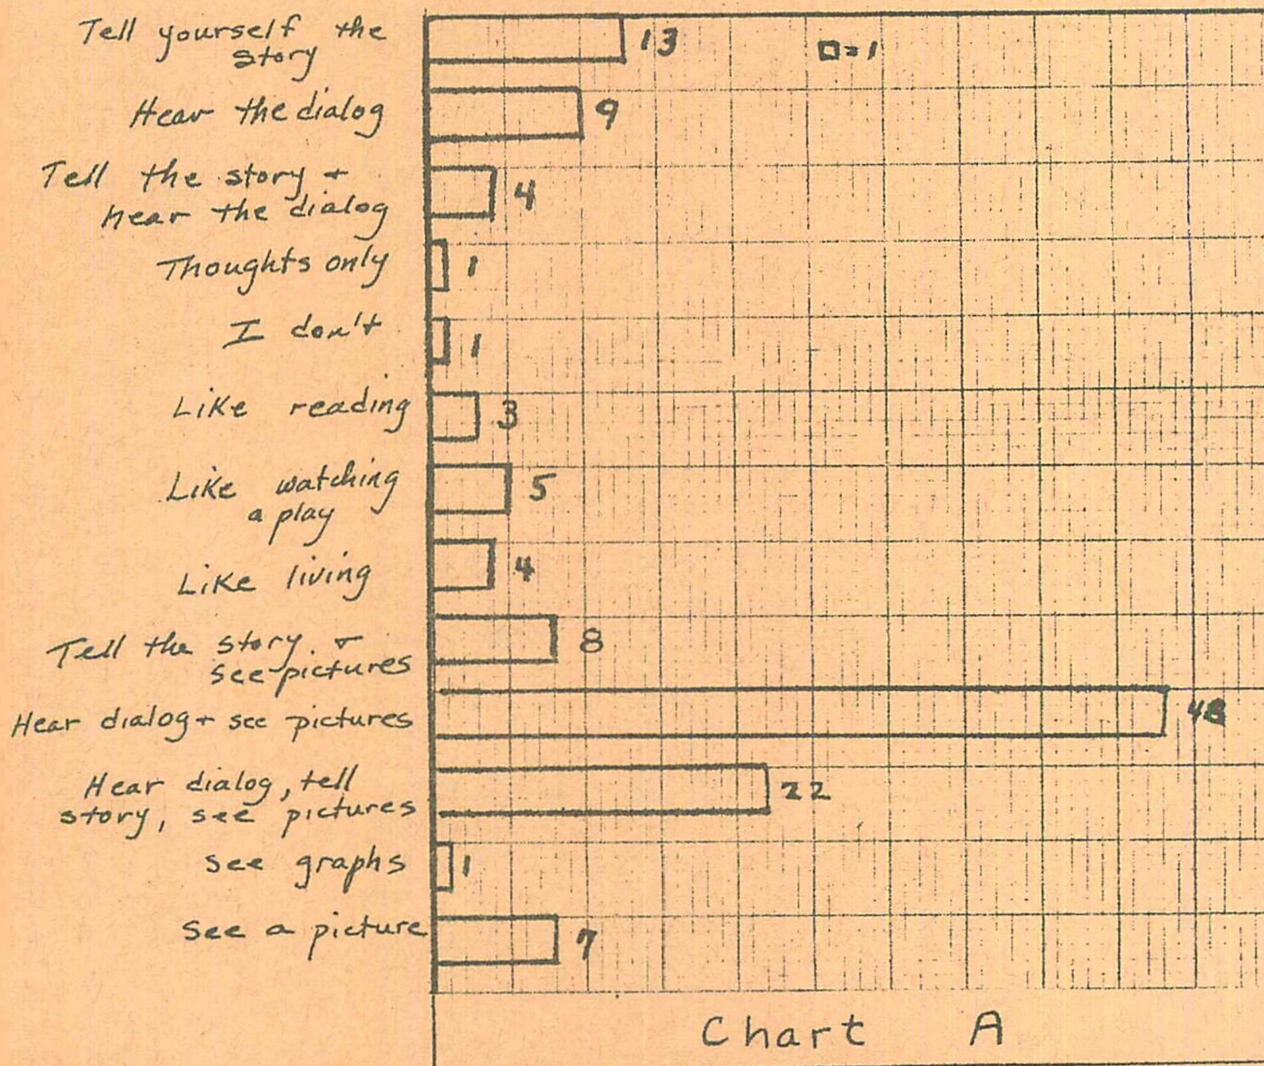 Tell yourself the
story
13
□=1
Hear the dialog
9
Tell the story +
hear the dialog
4
Thoughts only
1
I don't
1
Like reading
3
Like watching
a play
5
Like living
4
Tell the story +
see pictures
8
Hear dialog + see pictures
48
Hear dialog, tell
story, see pictures
22
See graphs
1
See a picture
7
Chart A